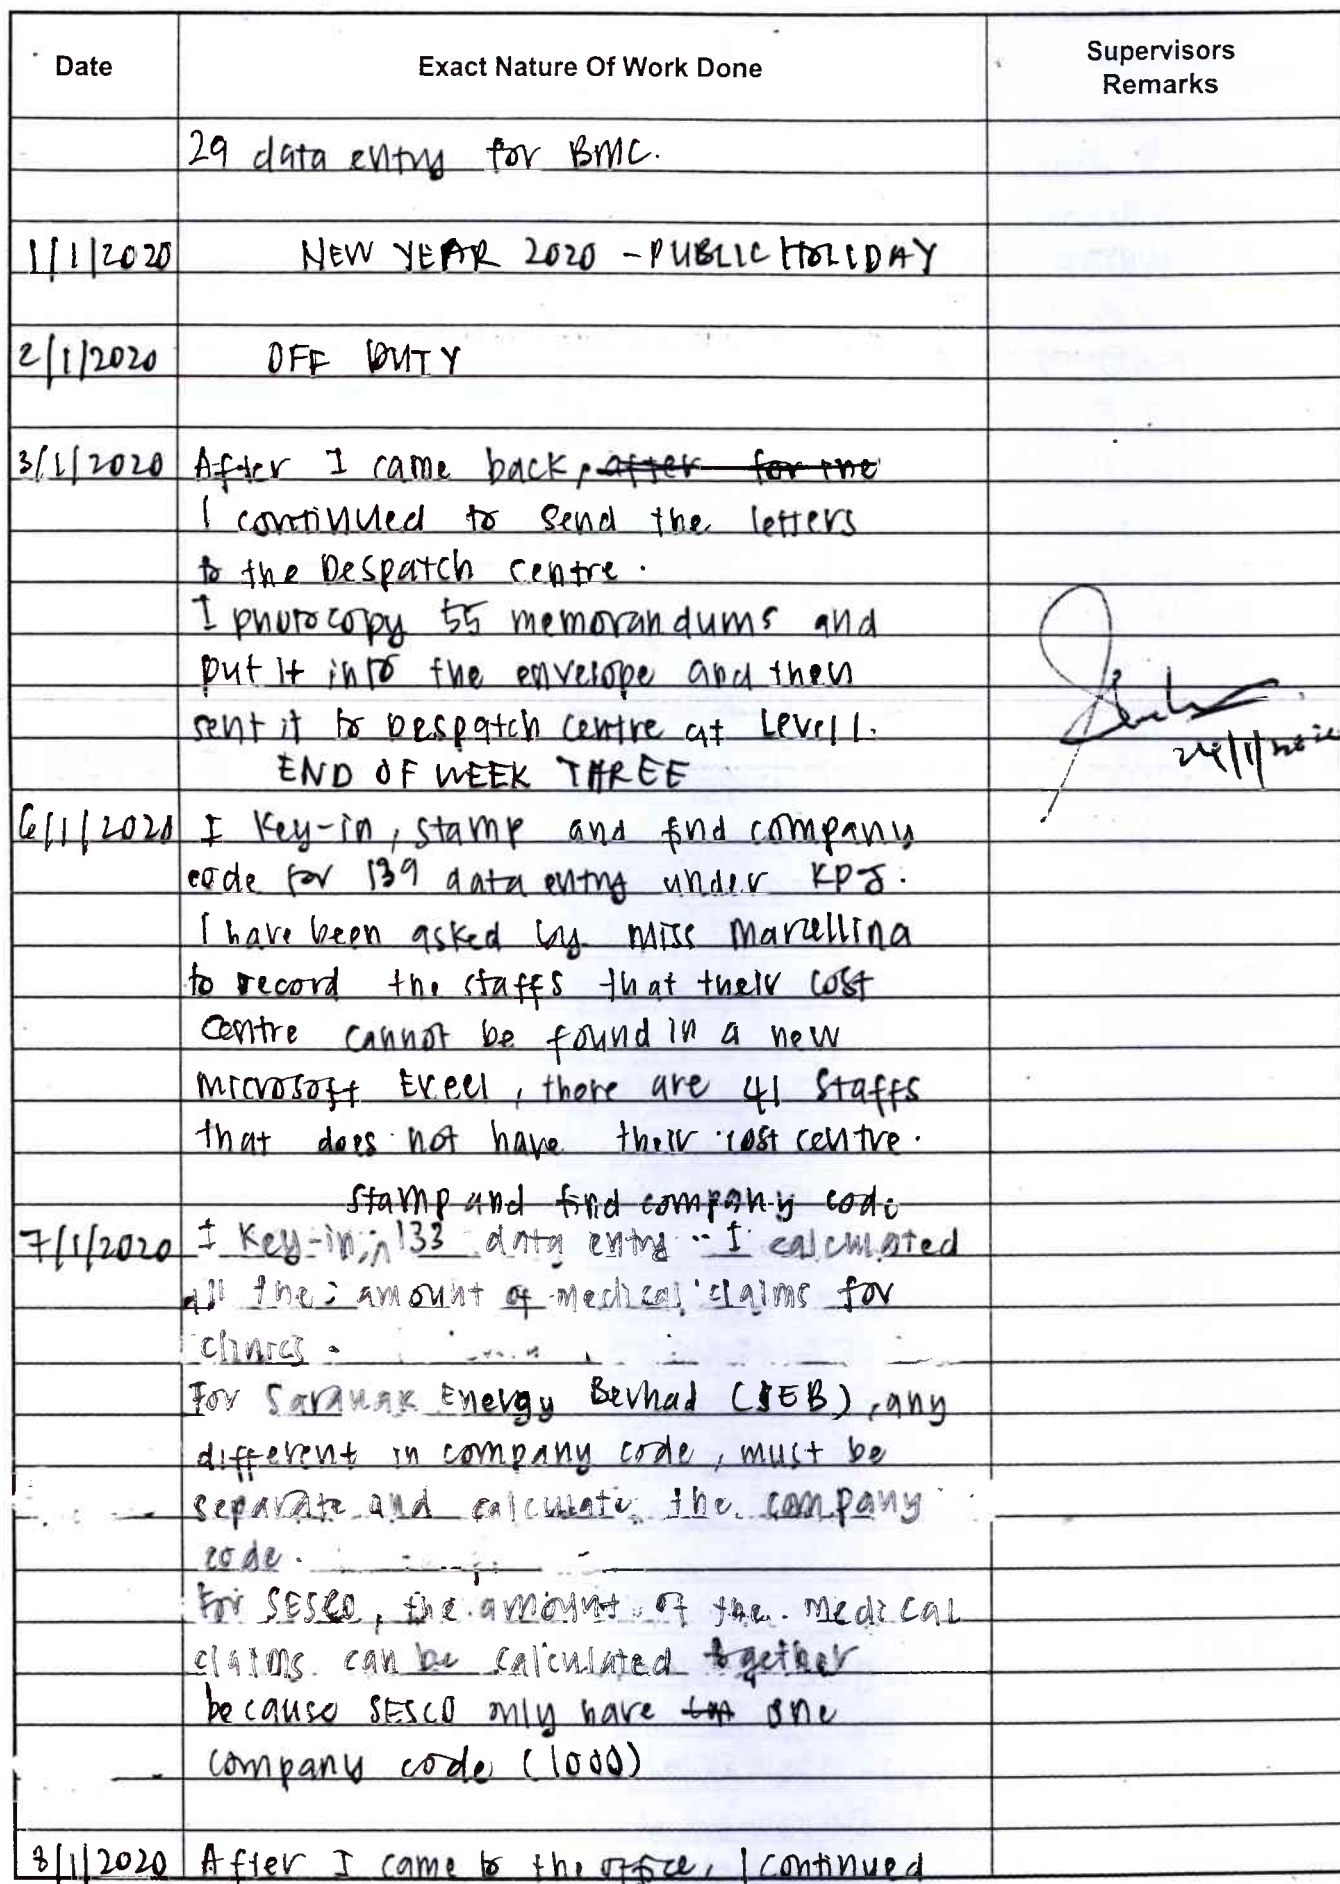 Date Exact Nature Of Work Done Supervisors Remarks
29 data entry for BMC.
1/1/2020 NEW YEAR 2020 - PUBLIC HOLIDAY
2/1/2020 OFF DUTY
3/1/2020 After I came back, after for the
I continued to send the letters
to the Despatch centre.
I photocopy 55 memorandums and
put it into the envelope and then
sent it to Despatch centre at Level 1.
END OF WEEK THREE
6/1/2020 I Key-in, stamp and find company
code for 139 data entry under KPJ.
I have been asked by Miss Marcellina
to record the staffs that their cost
centre cannot be found in a new
Microsoft Excel, there are 41 staffs
that does not have their cost centre.
stamp and find company code
7/1/2020 I Key-in, 133 data entry. I calculated
all the amount of medical claims for
clinics.
For Sarawak Energy Berhad (SEB), any
different in company code, must be
separate and calculate the company
code.
For SESCO, the amount of the medical
claims can be calculated together
because SESCO only have one
company code (1000)
8/1/2020 After I came to the office, I continued